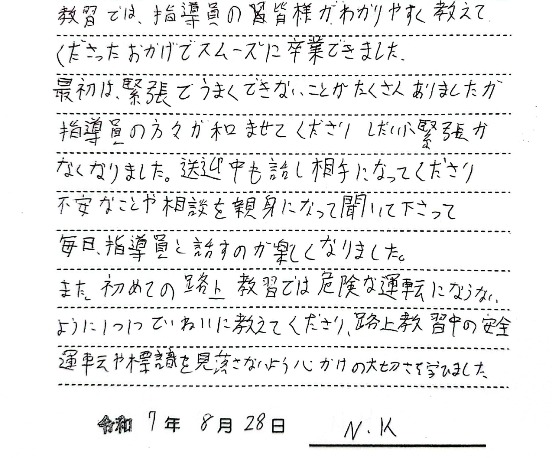 教習では、指導員の皆様がわかりやすく教えて
くださったおかげでスムーズに卒業できました。
最初は、緊張でうまくできないことがたくさんありましたが
指導員の方々が和ませてくださり しだいに緊張が
なくなりました。送迎中も話し相手になってくださり
不安なことや相談を親身になって聞いて下さって
毎日、指導員と話すのが楽しくなりました。
また、初めての路上教習では危険な運転にならない
ように1つ1つていねいに教えてくださり、路上教習中の安全
運転や標識を見落さないよう心がけの大切さを学びました
令和 7年 8月 28日 N.K